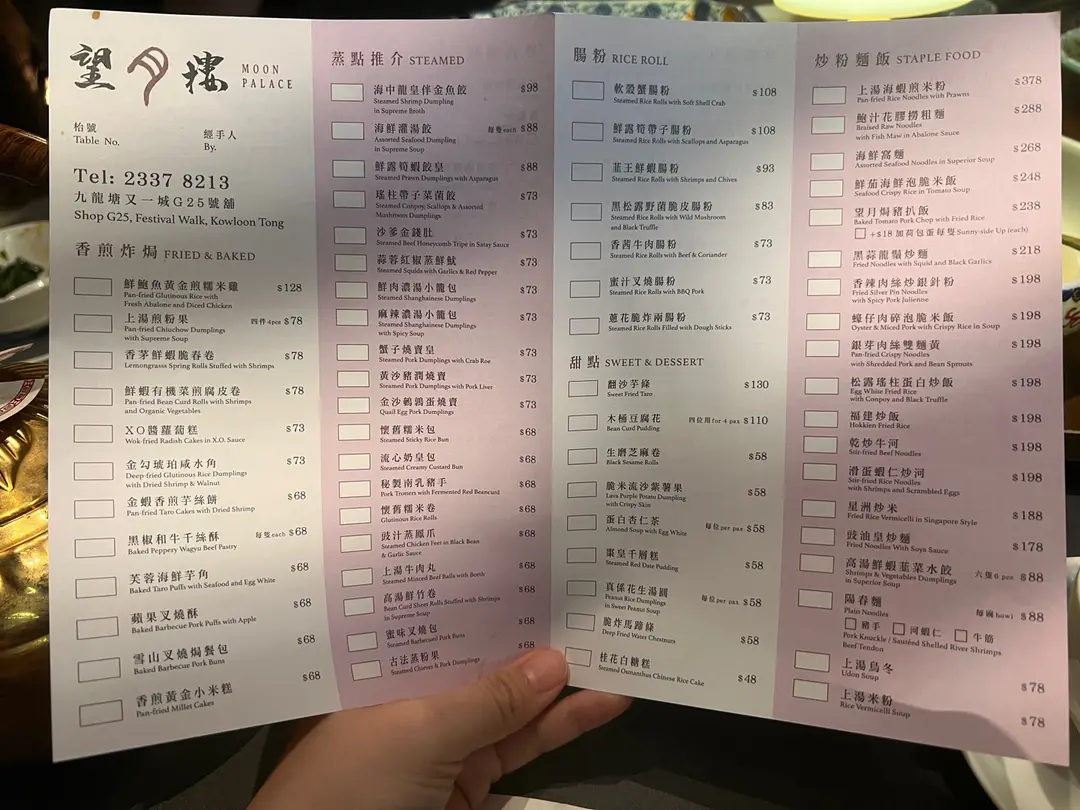 望月樓 MOON PALACE
枱號
Table No.
經手人
By.
Tel: 2337 8213
九龍塘又一城G25號舖
Shop G25, Festival Walk, Kowloon Tong
香煎炸焗 FRIED & BAKED
鮮鮑魚黃金煎糯米雞 $128
Pan-fried Glutinous Rice with
Fresh Abalone and Diced Chicken
上湯煎粉果 四件 4pcs $78
Pan-fried Chiuchow Dumplings
with Supreme Soup
香茅鮮蝦脆春卷 $78
Lemongrass Spring Rolls Stuffed with Shrimps
鮮蝦有機菜煎腐皮卷 $78
Pan-fried Bean Curd Rolls with Shrimps
and Organic Vegetables
XO醬蘿蔔糕 $73
Wok-fried Radish Cakes in X.O. Sauce
金勾琥珀咸水角 $73
Deep-fried Glutinous Rice Dumplings
with Dried Shrimp & Walnut
金蝦香煎芋絲餅 $68
Pan-fried Taro Cakes with Dried Shrimp
黑椒和牛千絲酥 每隻 each $68
Baked Peppery Wagyu Beef Pastry
芙蓉海鮮芋角 $68
Baked Taro Puffs with Seafood and Egg White
蘋果叉燒酥 $68
Baked Barbecue Pork Puffs with Apple
雪山叉燒焗餐包 $68
Baked Barbecue Pork Buns
香煎黃金小米糕 $68
Pan-fried Millet Cakes
蒸點推介 STEAMED
海中龍皇伴金魚餃 $98
Steamed Shrimp Dumpling
in Supreme Broth
海鮮灌湯餃 每隻 each $88
Assorted Seafood Dumpling
in Supreme Soup
鮮露筍蝦餃皇 $88
Steamed Prawn Dumplings with Asparagus
瑤柱帶子菜菌餃 $73
Steamed Conpoy, Scallops & Assorted
Mushroom Dumplings
沙爹金錢肚 $73
Steamed Beef Honeycomb Tripe in Satay Sauce
蒜蓉紅椒蒸鮮魷 $73
Steamed Squids with Garlics & Red Pepper
鮮肉濃湯小籠包 $73
Steamed Shanghainese Dumplings
麻辣濃湯小籠包 $73
Steamed Shanghainese Dumplings
with Spicy Soup
蟹子燒賣皇 $73
Steamed Pork Dumplings with Crab Roe
黃沙豬潤燒賣 $73
Steamed Pork Dumplings with Pork Liver
金沙鵪鶉蛋燒賣 $73
Quail Egg Pork Dumplings
懷舊糯米包 $68
Steamed Sticky Rice Bun
流心奶皇包 $68
Steamed Creamy Custard Bun
秘製南乳豬手 $68
Pork Trotters with Fermented Red Beancurd
懷舊糯米卷 $68
Glutinous Rice Rolls
豉汁蒸鳳爪 $68
Steamed Chicken Feet in Black Bean
& Garlic Sauce
上湯牛肉丸 $68
Steamed Minced Beef Balls with Broth
高湯鮮竹卷 $68
Bean Curd Sheet Rolls Stuffed with Shrimps
in Supreme Soup
蜜味叉燒包 $68
Steamed Barbecued Pork Buns
古法蒸粉果 $68
Steamed Chieves & Pork Dumplings
腸粉 RICE ROLL
軟殼蟹腸粉 $108
Steamed Rice Rolls with Soft Shell Crab
鮮露筍帶子腸粉 $108
Steamed Rice Rolls with Scallops and Asparagus
韮王鮮蝦腸粉 $93
Steamed Rice Rolls with Shrimps and Chives
黑松露野菌脆皮腸粉 $83
Steamed Rice Rolls with Wild Mushroom
and Black Truffle
香茜牛肉腸粉 $73
Steamed Rice Rolls with Beef & Coriander
蜜汁叉燒腸粉 $73
Steamed Rice Rolls with BBQ Pork
蔥花脆炸兩腸粉 $73
Steamed Rice Rolls Filled with Dough Sticks
甜點 SWEET & DESSERT
翻沙芋條 $130
Sweet Fried Taro
木桶豆腐花 四位用 for 4 pax $110
Bean Curd Pudding
生磨芝麻卷 $58
Black Sesame Rolls
脆米流沙紫薯果 $58
Lava Purple Potato Dumpling
with Crispy Skin
蛋白杏仁茶 每位 per pax $58
Almond Soup with Egg White
棗皇千層糕 $58
Steamed Red Date Pudding
真係花生湯圓 每位 per pax $58
Peanut Rice Dumplings
in Sweet Peanut Soup
脆炸馬蹄條 $58
Deep Fried Water Chestnuts
桂花白糖糕 $48
Steamed Osmanthus Chinese Rice Cake
炒粉麵飯 STAPLE FOOD
上湯海蝦煎米粉 $378
Pan-fried Rice Noodles with Prawns
鮑汁花膠撈粗麵 $288
Braised Raw Noodles
with Fish Maw in Abalone Sauce
海鮮窩麵 $268
Assorted Seafood Noodles in Superior Soup
鮮茄海鮮泡脆米飯 $248
Seafood Crispy Rice in Tomato Soup
望月焗豬扒飯 $238
Baked Tomato Pork Chop with Fried Rice
+$18 加荷包蛋每隻 Sunny-side Up (each)
黑蒜龍鬚炒麵 $218
Fried Noodles with Squid and Black Garlics
香辣肉絲炒銀針粉 $198
Fried Silver Pin Noodles
with Spicy Pork Julienne
蠔仔肉碎泡脆米飯 $198
Oyster & Miced Pork with Crispy Rice in Soup
銀芽肉絲雙麵黃 $198
Pan-fried Crispy Noodles
with Shredded Pork and Bean Sprouts
松露瑤柱蛋白炒飯 $198
Egg White Fried Rice
with Conpoy and Black Truffle
福建炒飯 $198
Hokkien Fried Rice
乾炒牛河 $198
Stir-fried Beef Noodles
滑蛋蝦仁炒河 $198
Stir-fried Rice Noodles
with Shrimps and Scrambled Eggs
星洲炒米 $188
Fried Rice Vermicelli in Singapore Style
豉油皇炒麵 $178
Fried Noodles With Soya Sauce
高湯鮮蝦韮菜水餃 六隻 6 pcs $88
Shrimps & Vegetables Dumplings
in Superior Soup
陽春麵 每碗 bowl $88
Plain Noodles
豬手 河蝦仁 牛筋
Pork Knuckle / Sautéed Shelled River Shrimps
Beef Tendon
上湯烏冬 $78
Udon Soup
上湯米粉 $78
Rice Vermicelli Soup